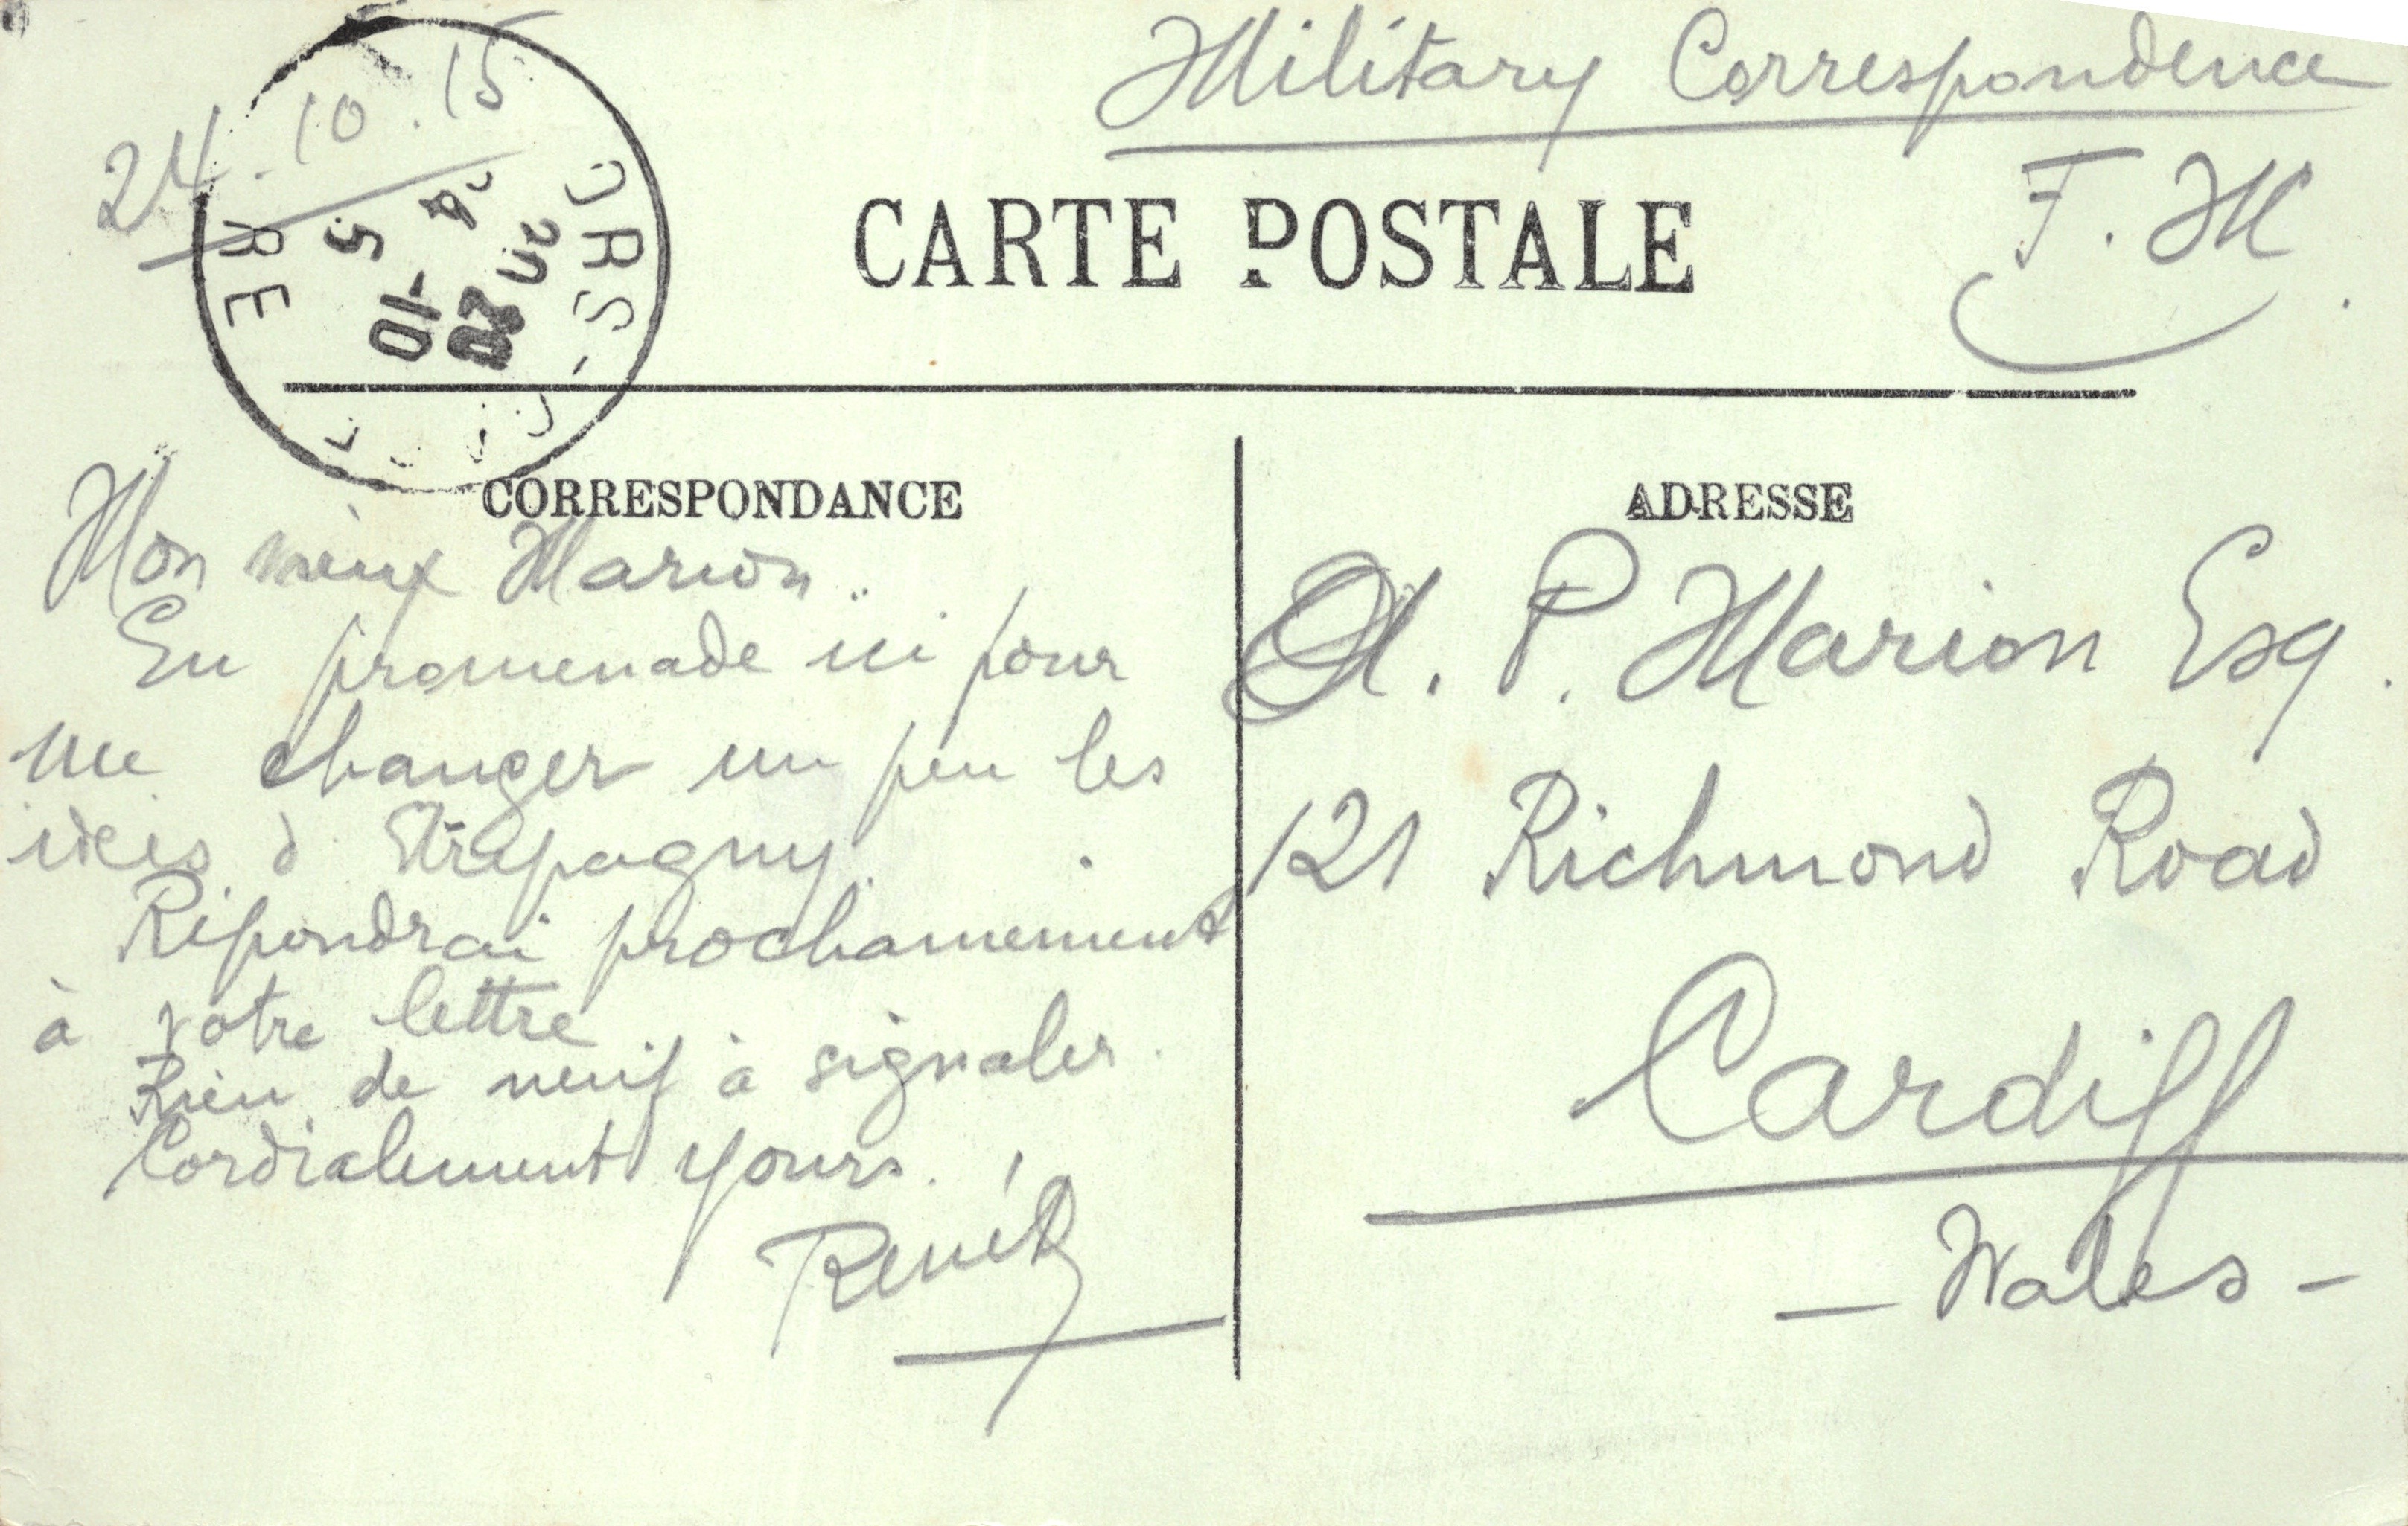 Military Correspondence
24.10.15
F. M.
CARTE POSTALE
RE
5
-10
20
CORRESPONDANCE
Mon vieux Marion..
En promenade ici pour
me changer un peu les
idées d'Etrépagny.
Répondrai prochainement
à votre lettre
Rien de neuf à signaler.
Cordialement yours.
René
ADRESSE
P. Marion Esq.
121 Richmond Road
Cardiff
- Wales -